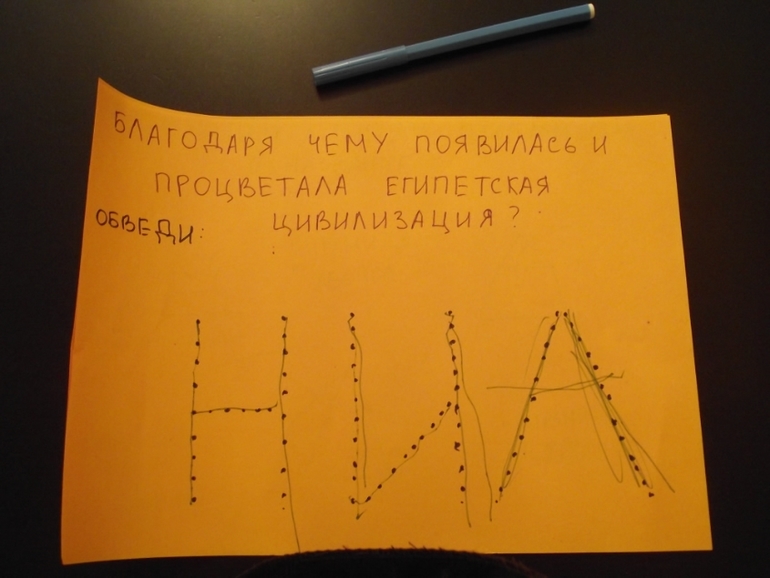 БЛАГОДАРЯ ЧЕМУ ПОЯВИЛАСЬ И
ПРОЦВЕТАЛА ЕГИПЕТСКАЯ
ЦИВИЛИЗАЦИЯ?
ОБВЕДИ:
НИЛ